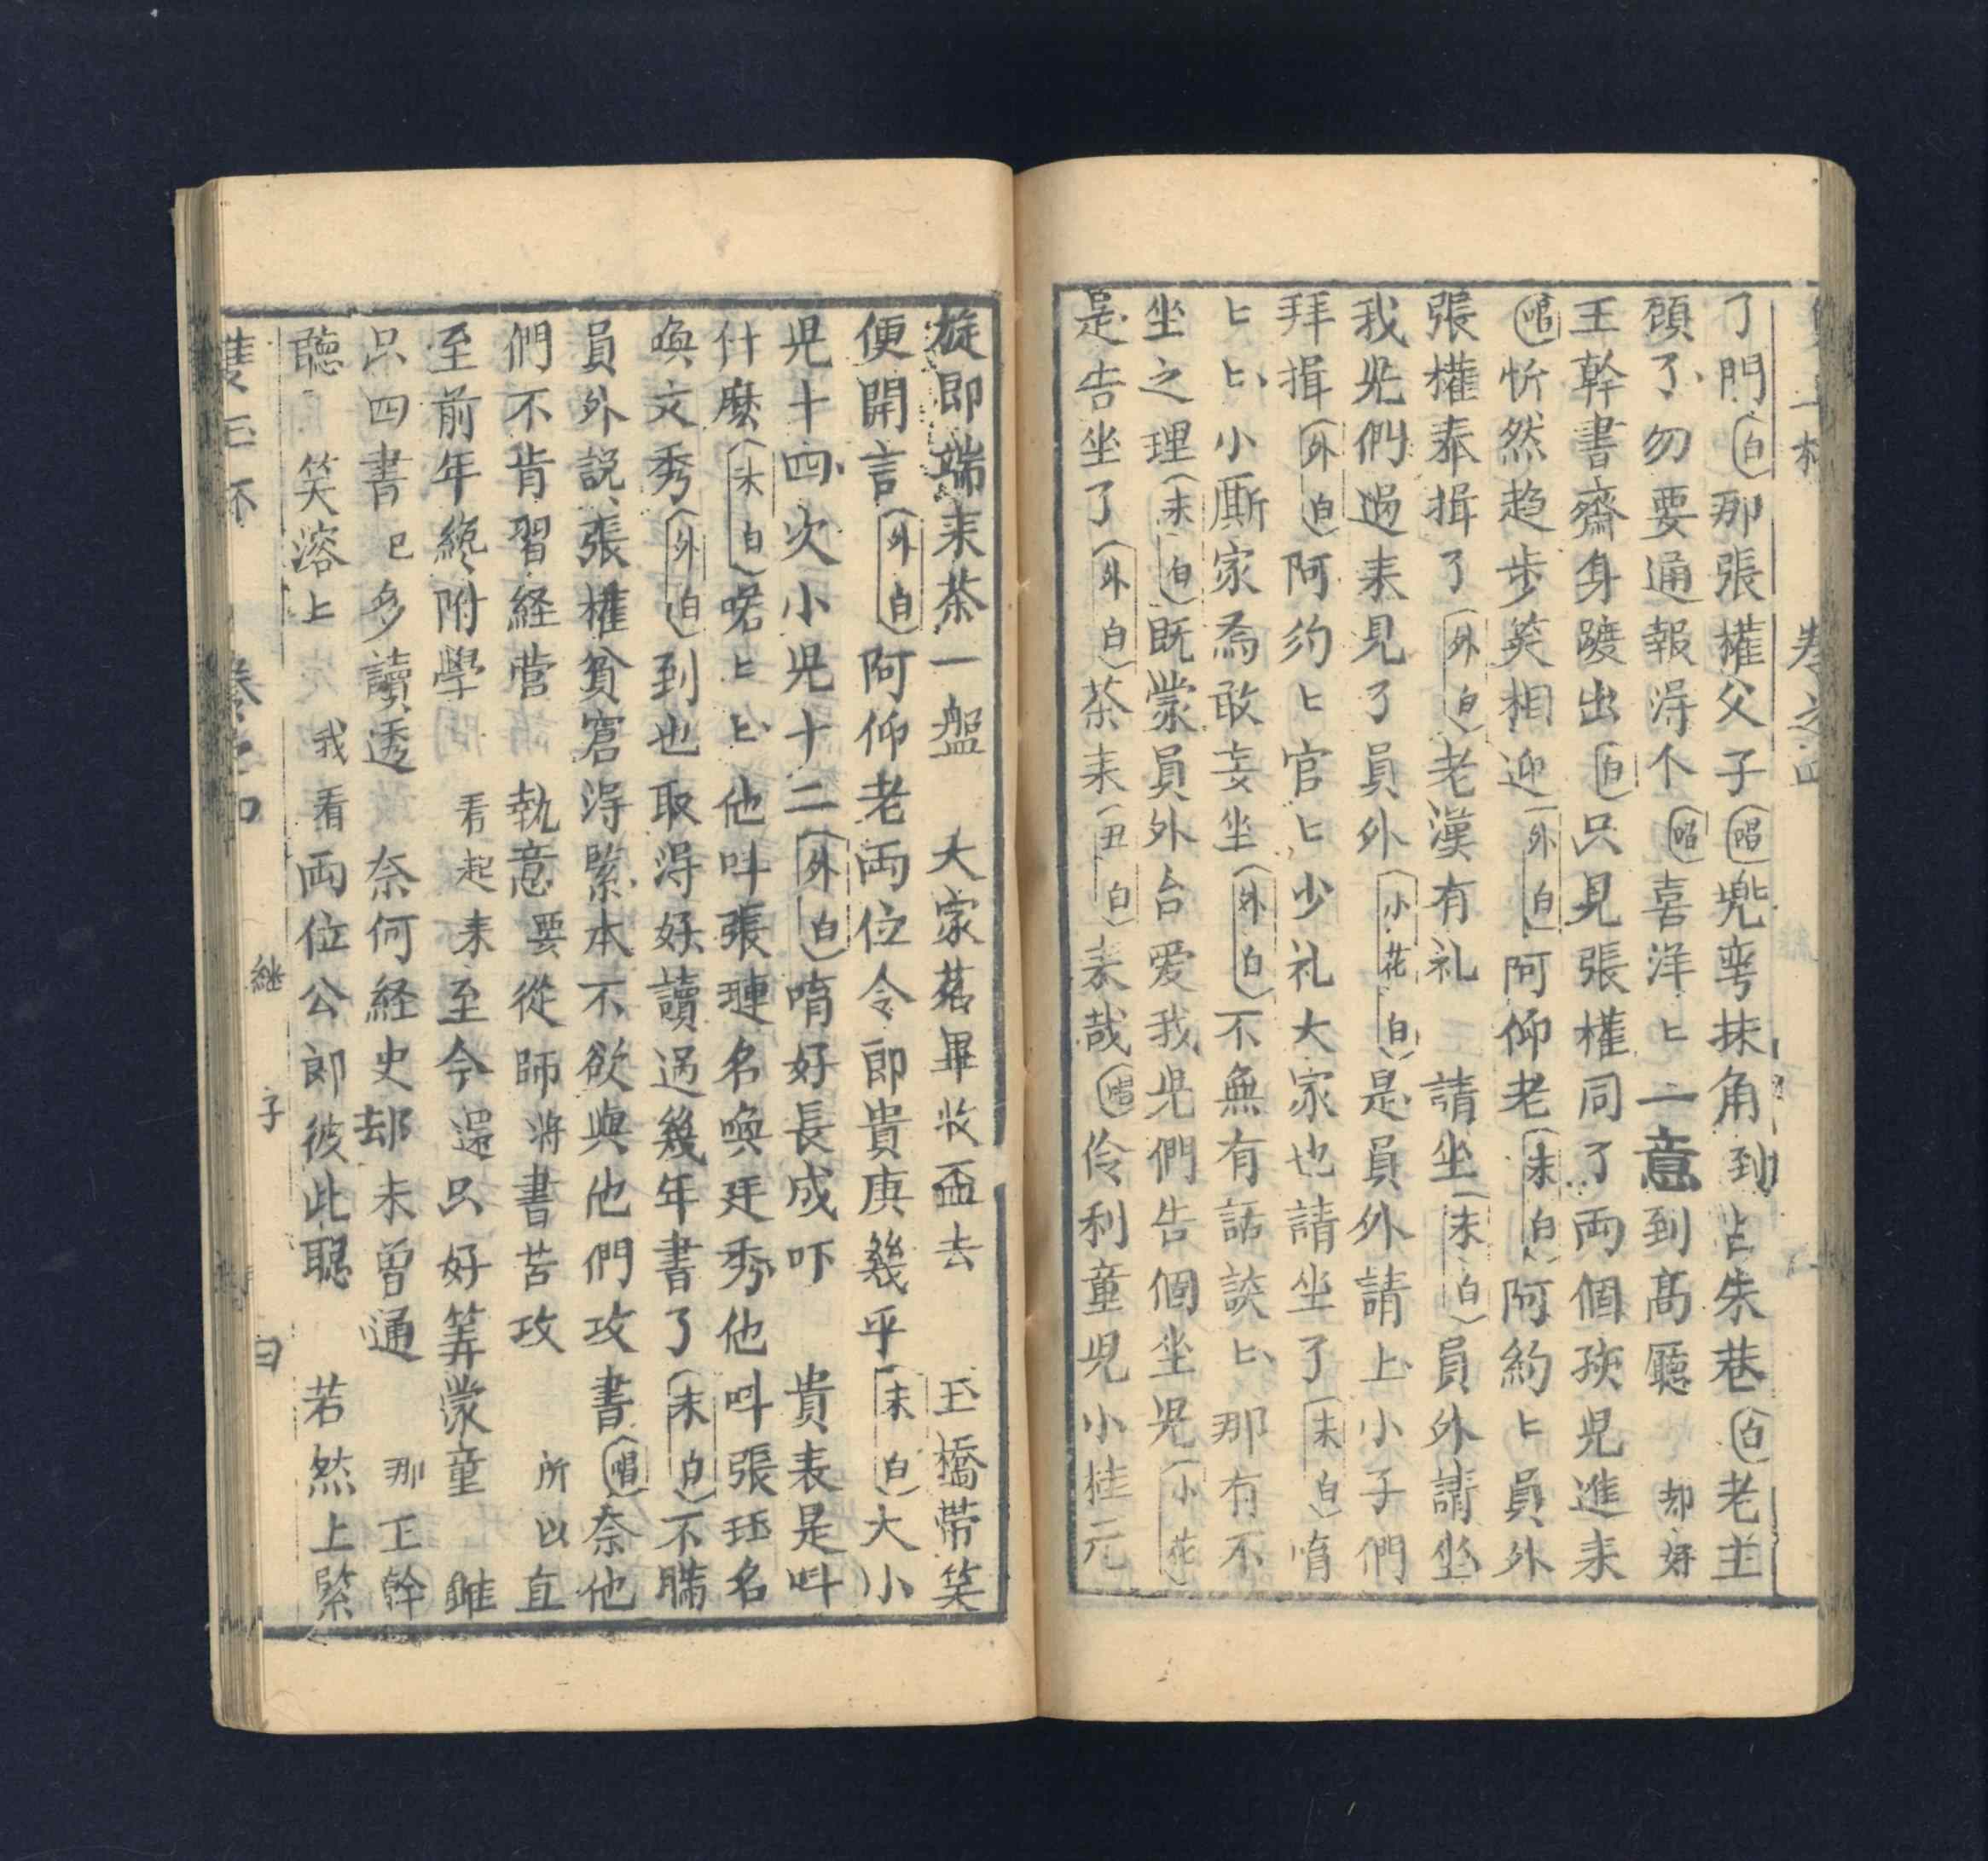 了門(白)那張權父子(唱)兜弯抹角到占朱巷(白)老主
顧了勿要通報淂个(唱)喜洋〻一意到高廳 却好
王幹書齋身踱出(白)只見張權同了両個孩兒進来
(唱)忻然趋步笑相迎(外白)阿仰老(末白)阿約〻員外
張權奉揖了(外白)老漢有礼 請坐(末白)員外請坐
我兒們過来見了員外(小花白)是員外請上小子們
拜揖(外白)阿約〻官〻少礼大家也請坐了(末白)唷
〻〻小厮家焉敢妄坐(外白)不無有話談〻那有不
坐之理(末白)既蒙員外台爱我兒們告個坐兒(小花)
是告坐了(外白)茶来(丑白)来哉(唱)伶利童兒小桂元
旋即端来茶一盤 大家茗畢收盃去 王橋带笑
便開言(外白)阿仰老両位令郎貴庚幾乎(末白)大小
兒十四次小兒十二(外白)唷好長成吓 貴表是呌
什麽(末白)喏〻〻他呌張璉名喚廷秀他呌張珏名
喚文秀(外白)到也取淂好讀過幾年書了(末白)不瞞
員外説張權貧窘淂緊本不欲與他們攻書(唱)奈他
們不肯習経营 執意要從師將書苦攻 所以直
至前年纔附學 看起来至今還只好筭蒙童 雖
只四書已多讀透 奈何経史却未曾通 那王幹
聽 笑溶上 我看両位公郎彼此聪 若然上緊
雙玉杯 卷之四 継子 四